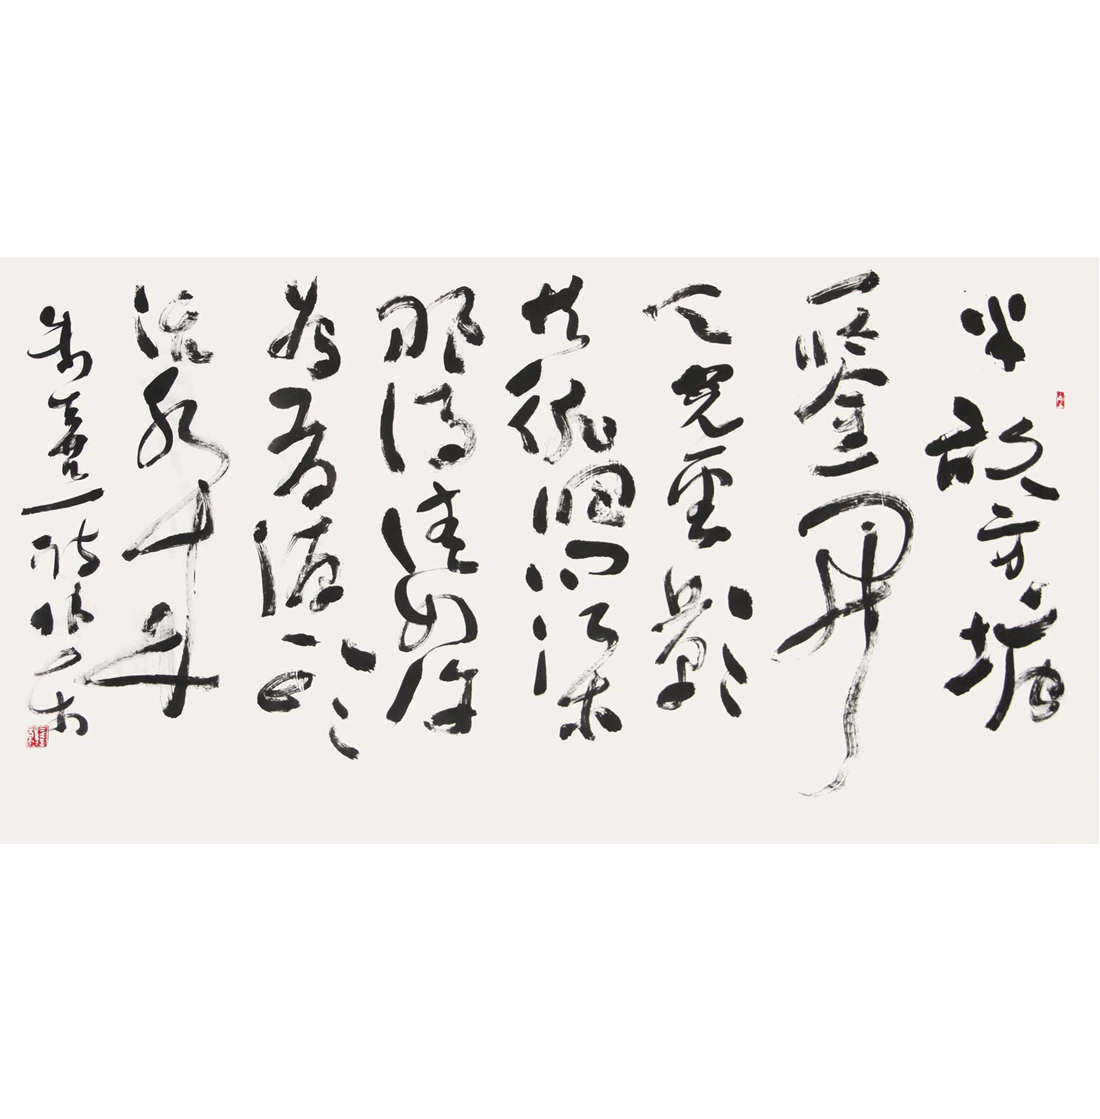 半畝方塘
一鑒開
天光雲影
共徘徊問渠
那得清如許
為有源頭
活水来
朱熹詩